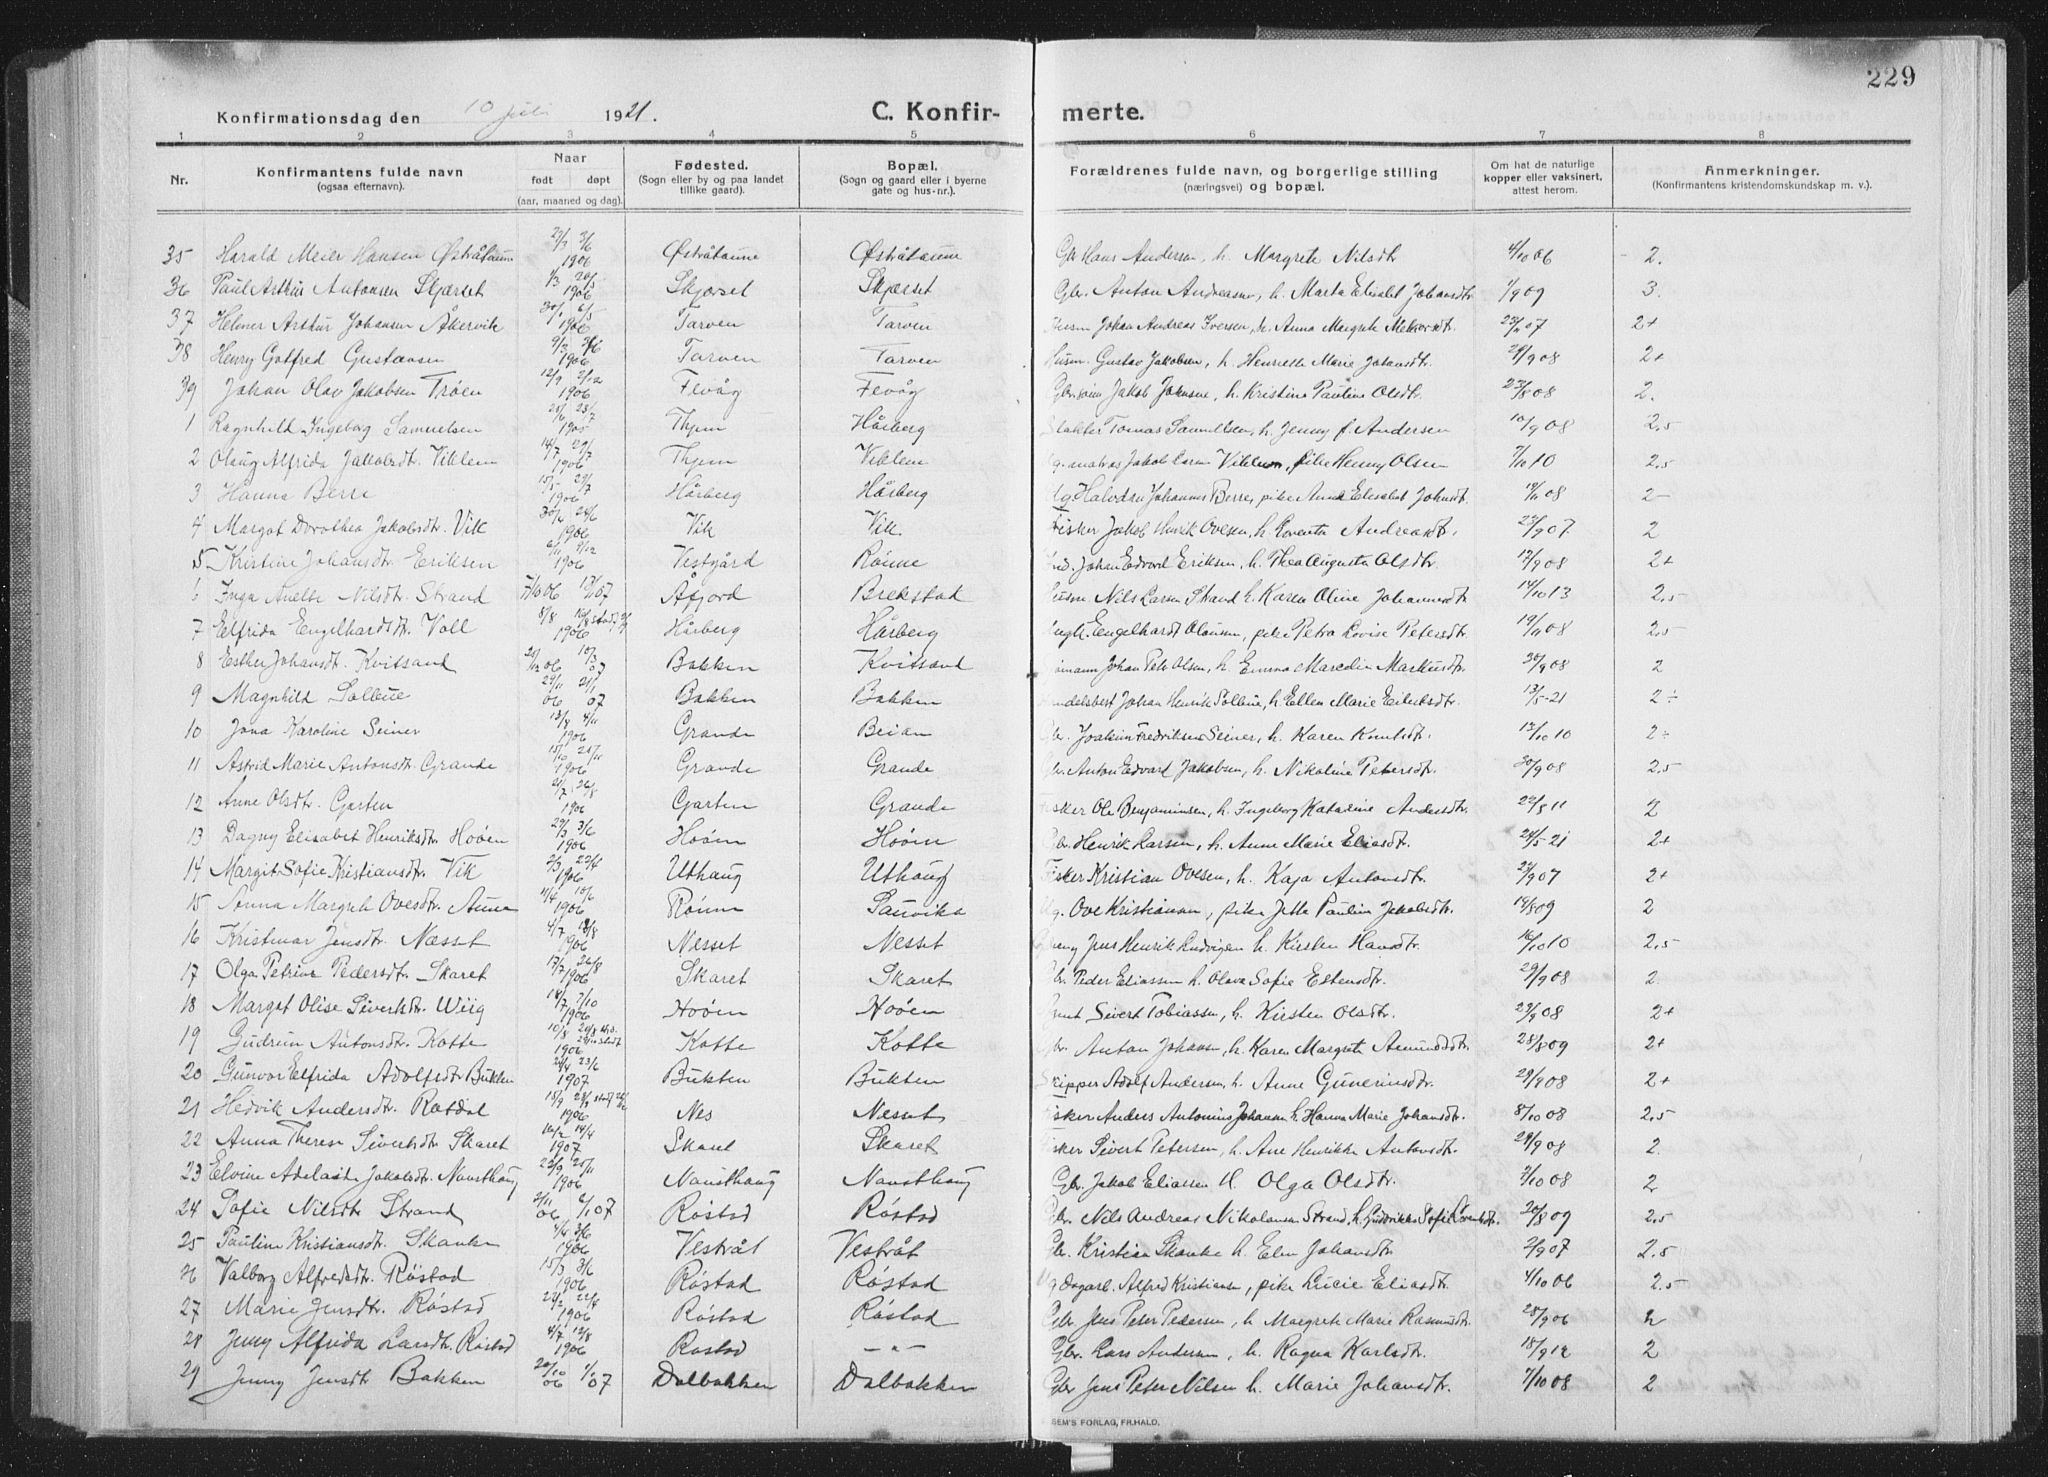 229
Konfirmationsdag den 10 juli 1921. C. Konfirmerte.
1 2 3 4 5 6 7 8
Nr. Konfirmantens fulde navn (ogsaa efternavn). Naar født døpt (aar, maaned og dag). Fødested. (Sogn eller by og paa landet tillike gaard). Bopæl. (Sogn og gaard eller i byerne gate og hus-nr.). Forældrenes fulde navn, og borgerlige stilling (næringsvei) og bopæl. Om hat de naturlige kopper eller vaksinert, attest herom. Anmerkninger. (Konfirmantens kristendomskundskap m. v.).
35 Harald Meier Hansen Østråtaune 1906 Østråtaune Østråtaune Gbr Hans Andersen, h. Margrete Nilsdtr 4/10 06 2.
36 Paul Arthur Antonsen Skjærset 1/3 20/5 1906 Skjærset Skjærset Gbr. Anton Andreasen, h. Marta Elisabet Johansdtr 1/9 09 3.
37 Helmer Arthur Johansen Åkervik 30/1 6/5 1906 Tarven Tarven Husm Johan Andreas Iversen, h. Anna Margrete 07 2+
38 Henry Gotfred Gustavsen 9/3 1906 Tarven Tarven Husm. Gustav Jakobsen, h. Henriette Marie Johansdtr. 29/9 08 2+
39 Johan Olav Jakobsen Trøen 12/9 2/12 1906 Flevåg Flevåg Jakob Johnsen, h. Kristine Pauline Olsdtr. 23/8 08 2.
1 Ragnhild Ingeborg Samuelsen Thjem Hårberg Slakter Tomas Samuelsen, h. Jenny f. Andersen 10/9 08 2,5
2 Olaug Alfrida Jakobsdtr. Viklem 1906 Thjem Viklem Jakob Viklem, pike Henny Olsen 7/10 10 2,5
3 Hanna Berre 15/5 29/7 1906 Hårberg Hårberg Halvdan Johannes Berre, pike Anna Elisabet Johnsdtr. 08 2-
4 Margot Dorothea Jakobsdtr. Vik 30/4 24/6 1906 Vik Vik. Fisker Jakob Henrik Ovesen, h. Andreasdtr. 27/9 07. 2
5 Kristine Johansdtr. Eriksen 6/11 9/12 1906 Vestgård Rønne Johan Edvard Eriksen, h. Thea Augusta Olsdtr. 12/9 08 2+
6 Inga Anette Nilsdtr. Strand 7/10 06 07 Åfjord Brekstad Nils Larsen Strand h. Karen Oline Johannesdtr 14/10 13 2,5
7 Elfrida Engelhardtsdtr. Voll 8/8 1906 Hårberg Hårberg Engelhardt Olausen, pike Petra Lovise Petersdtr. 19/11 08 2,5
8 Esther Johansdtr. Kvitsand 06 10/3 07 Bakken Kvitsand Johan Olsen, h. Emma Marcelie Markusdtr. 30/9 08 2
9 Magnhild Sollie 29/11 06 21/1 07 Bakken Bakken Johan Henrik Sollie, h. Ellen Marie Eriksdtr. 13/5-21 2÷
10 Jona Karoline Seiner 13/8 4/11 1906 Grande Beian Gbr. Joakim Fredriksen Seiner, h. Karen Knutsdtr. 12/10 10 2÷
11 Astrid Marie Antonsdtr. Grande 15/10 25/11 1906 Grande Grande Gbr. Anton Edvard Jakobsen, h. Nikoline Petersdtr. 30/9 08 2,5
12 Anne Olsdtr. Garten 21/7 26/8 1906 Garten Grande Fisker Ole Benjaminsen, h. Ingeborg Katarine Andersdtr. 22/8 11 2
13 Dagny Elisabet Henriksdtr. Hoøen 29/3 3/6 1906 Hoøen Hoøen Gbr. Henrik Larsen, h. Anne Marie Eliasdtr. 24/5-21 2+
14 Margit Sofie Kristiansdtr. Vik 2/3 22/4 1906 Uthaug Uthaug Fisker Kristian Ovesen, h. Kaja Antonsdtr. 27/9 07 2+
15 Margrete Ovesdtr. Aune 11/4 10/6 1906 Rønne Sauvika Ug. Ove Kristiansen, pike Jette Pauline Jakobsdtr. 19/8 09 2
16 Kristmar Jensdtr. Næsset 4/7 1906 Nesset Nesset Jens Henrik Ludvigsen h. Kirsten Hansdtr. 16/10 10 2,5
17 Olga Petrine Pedersdtr. Skaret 17/7 26/8 1906 Skaret Skaret Gbr Peder Eliassen h. Olava Sofie Estensdtr. 29/9 08 2.
18 Margot Olise Sivertsdtr. Wiig 18/7 7/10 1906 Hoøen Hoøen Sivert Tobiassen, h. Kirsten Olsdtr. 23/9 08 2+
19 Gudrun Antonsdtr. Kotte 10/8 1906 Kotte Kotte Gbr. Anton Johansen, h. Karen Margrete Amundsdtr. 28/8 09 2+
20 Gunvor Elfrida Adolfsdtr Bukten 24/4 23/6 1907 Bukten Bukten Skipper Adolf Andersen, h. Anne Gunerinsdtr. 29/9 08 2+
21 Hedvik Andersdtr. Rotdal 15/9 1906 Nes Nesset Fisker Anders Antonius Johansen h. Hanna Marie Johansdtr. 8/10 08 2,5
22 Anna Therese Sivertsdtr Skaret 16/2 14/4 1907 Skaret Skaret Fisker Sivert Petersen, h. Ane Henrikke Antonsdtr. 29/9 08 2.
23 Elvine Adelaide Jakobsdtr. Nausthaug 22/9 25/11 1906 Nausthaug Nausthaug Gbr. Jakob Eliassen h. Olga Olsdtr. 7/10 08 2
24 Sofie Nilsdtr Strand 2/11 06 6/1 07 Røstad Røstad Gbr. Nils Andreas Nikolausen Strand, h. Sofie 20/8 09 2,5
25 Pauline Kristiansdtr. Skanke 4/4 3/6 1906 Vestråt Vestråt Gbr. Kristian Skanke h. Elen Johansdtr 2/9 07 2,5
26 Valborg Alfredsdtr. Røstad 15/3 3/6 1906 Røstad Røstad Ug dagarb. Alfred Kristiansen, pike Lucie Eliasdtr. 4/10 06 2,5
27 Marie Jensdtr. Røstad 24/2 22/4 1906 Røstad Røstad Gbr. Jens Peter Pedersen, h. Margrete Marie Rasmusdtr. 28/9 06 2
28 Jenny Alfrida Larsdtr. Røstad 4/7 12/8 1906 Røstad -"- Gbr. Lars Andersen, h. Ragna Karlsdtr. 18/9 12 2
29 Jenny Jensdtr Bakken 20/10 06 1/1 07 Dalbakken Dalbakken Gbr Jens Peter Nilsen h. Marie Johansdtr. 7/10 08 2
SEM'S FORLAG, FR.HALD.